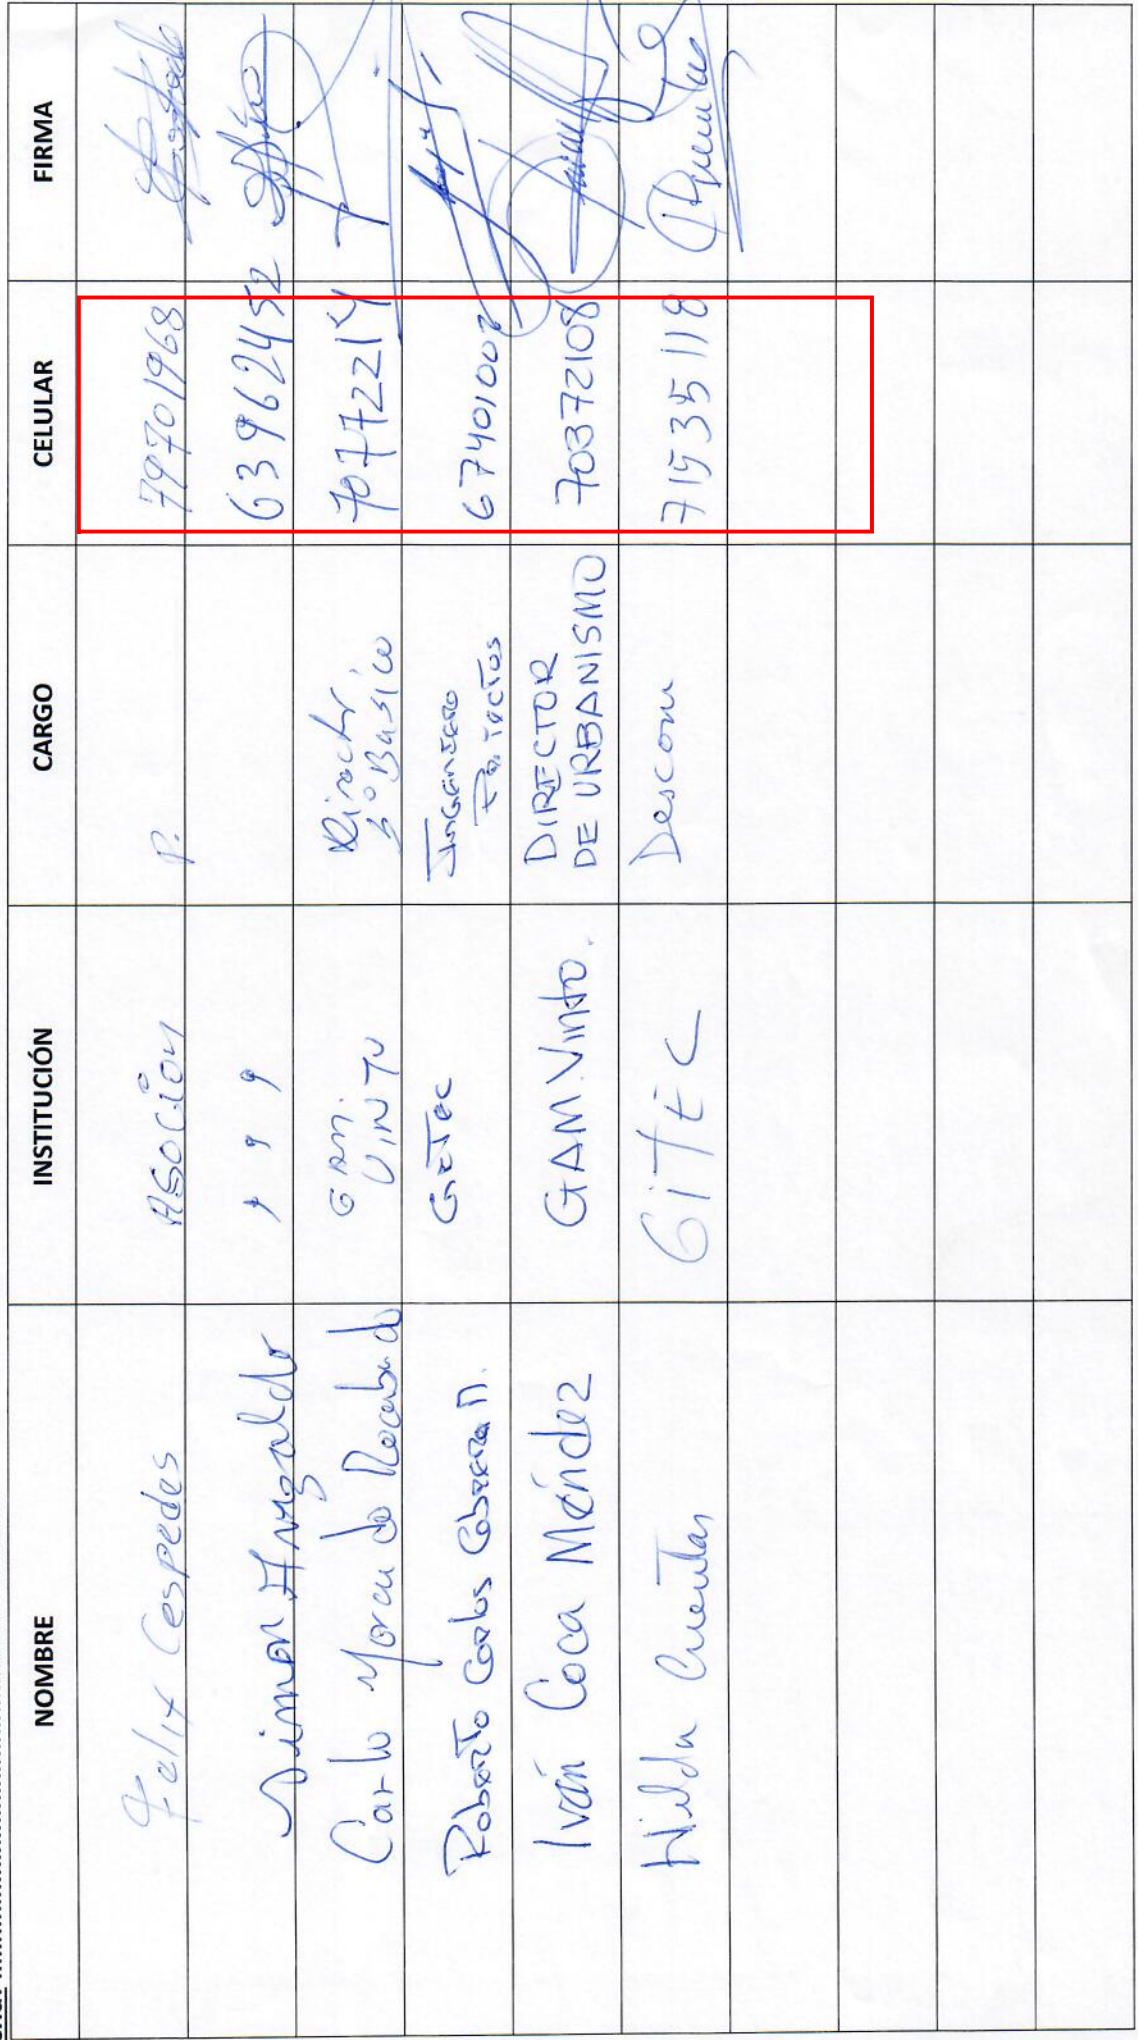 NOMBRE INSTITUCIÓN CARGO CELULAR FIRMA
Felix Cespedes Asocion P. 79701968
Simon Arzaldo , , , 63962452
Carlo Mercado Rocabado GAM. VINTO Director S. Basico 70772214
Roberto Carlos Cabrera M. GITEC Ingeniero Proyectos 67401002
Iván Coca Méndez GAM.Vinto. DIRECTOR DE URBANISMO 70372108
Hilda Cuentas GiTEC Descom 71535118